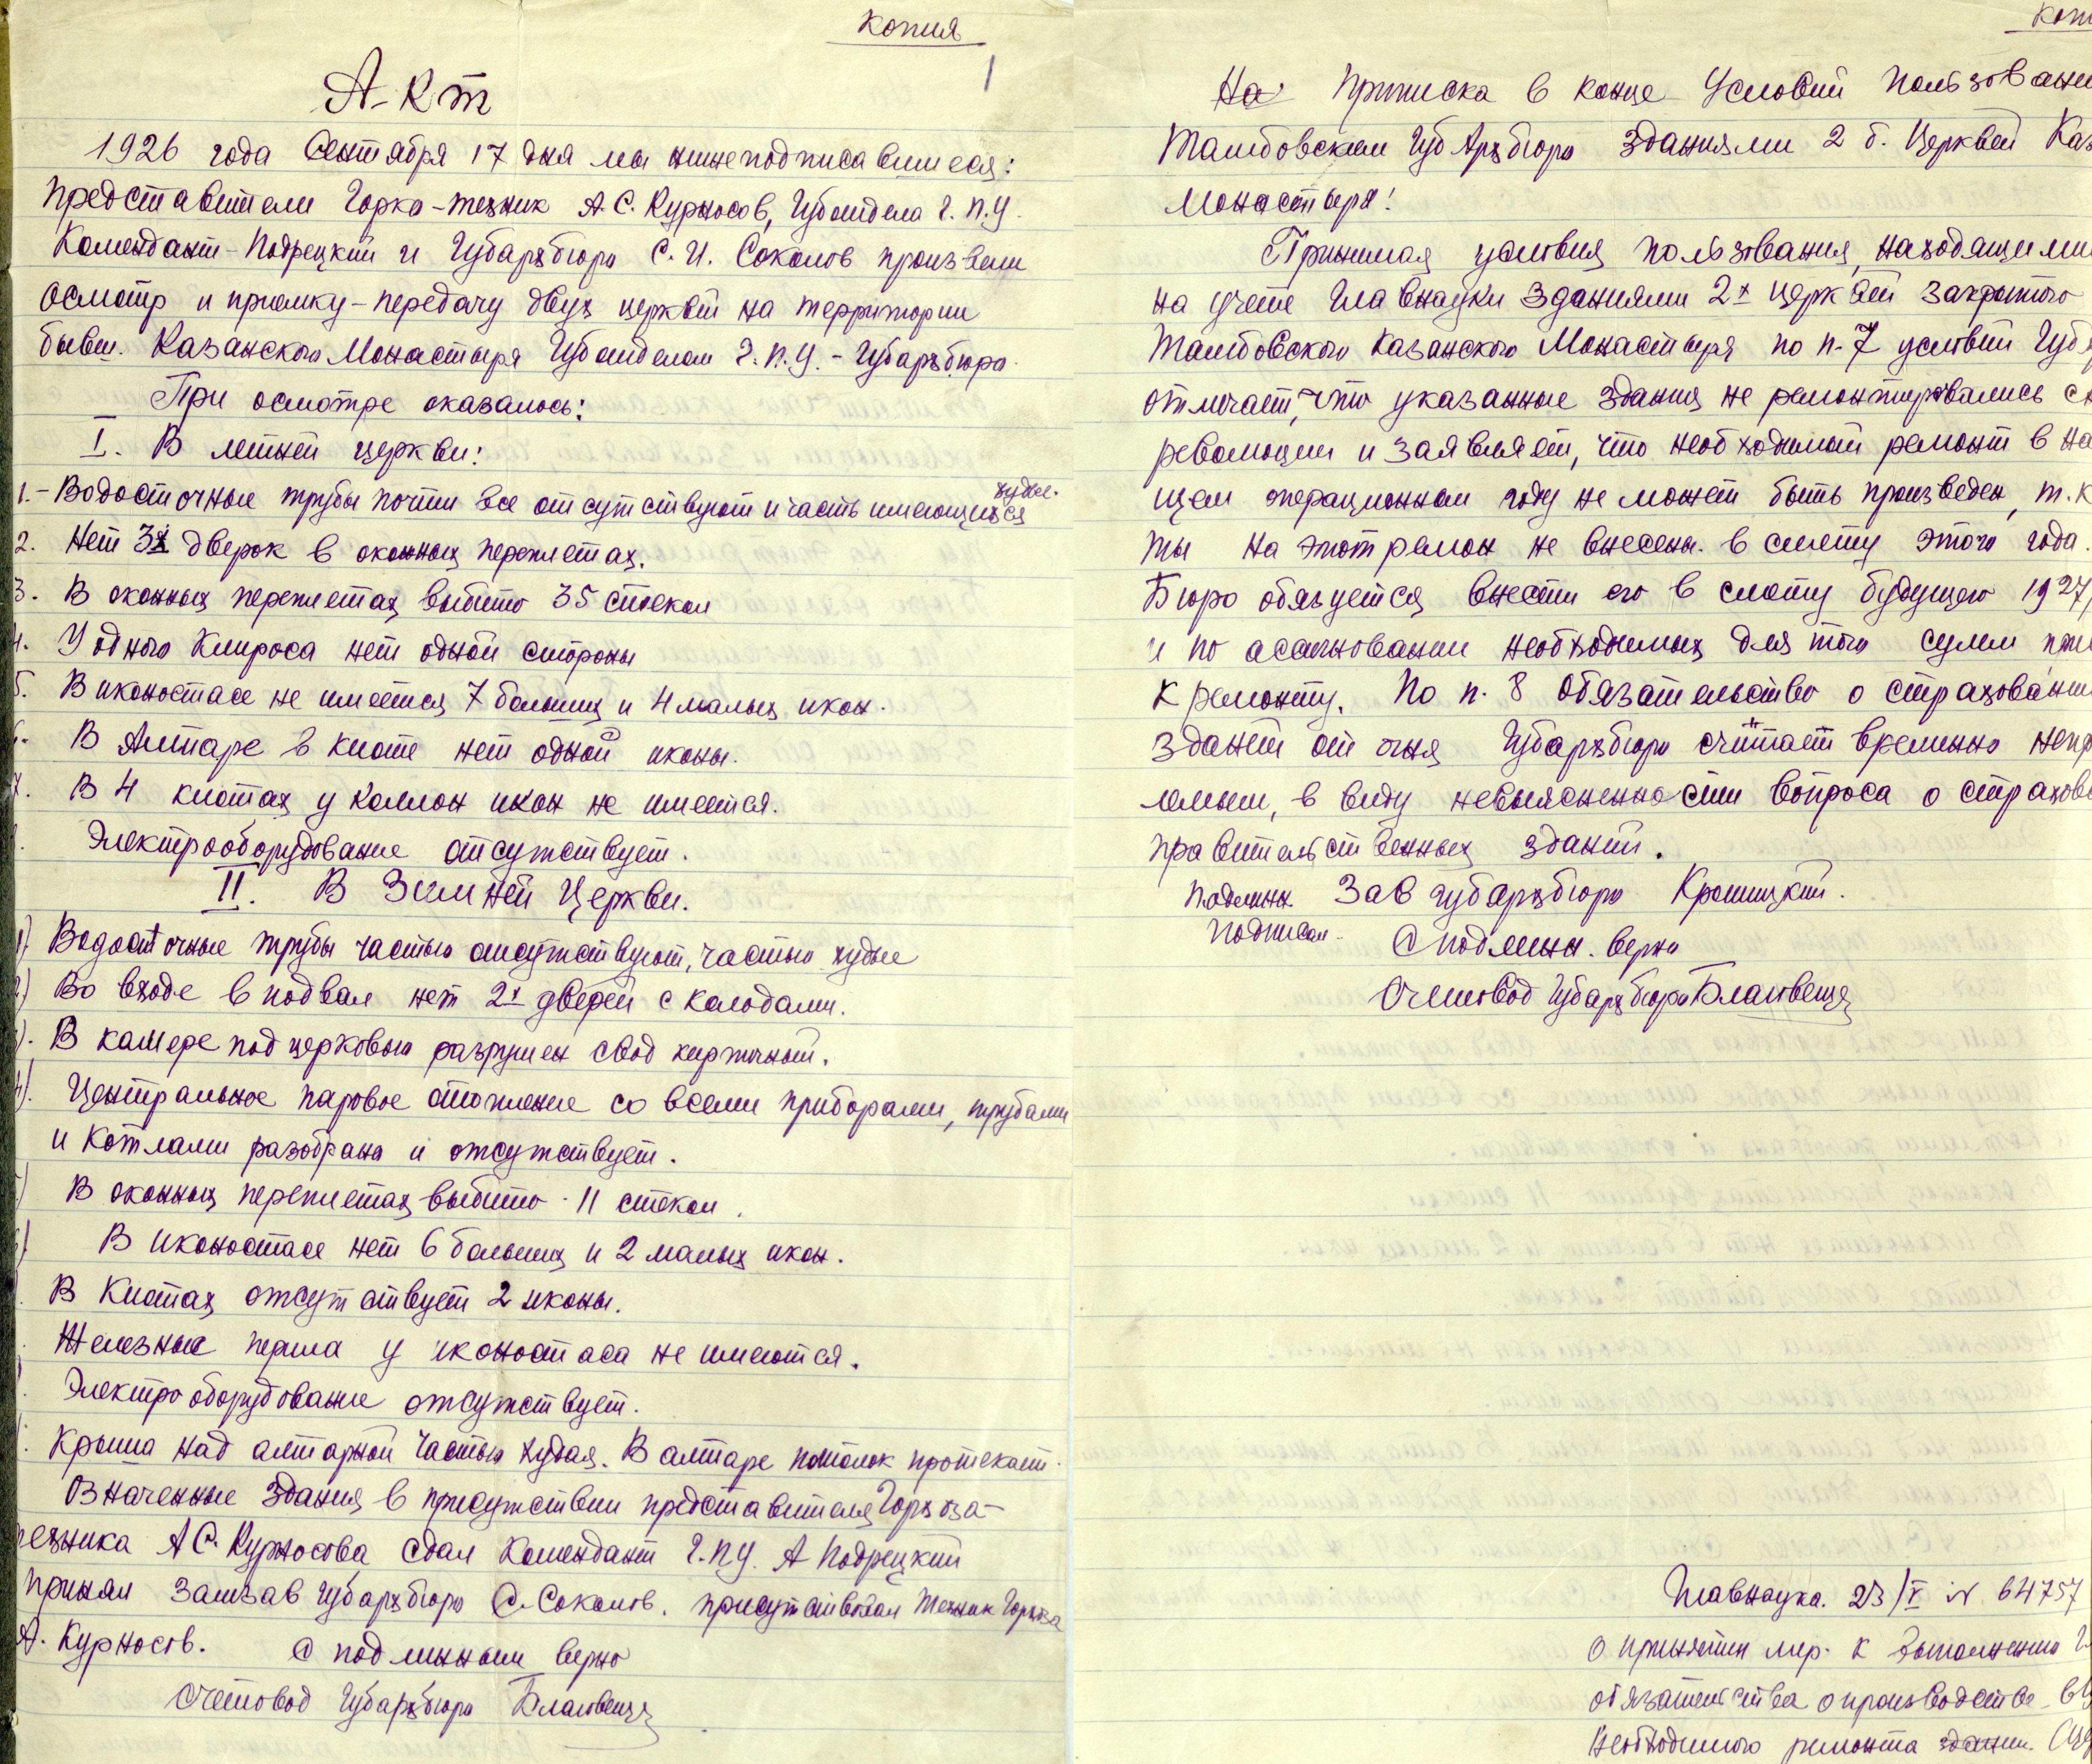 копия
1
А-кт
1926 года Сентября 17 дня мы нинеподписавшиеся:
представители Горко-техник А.С. Курносов, Губотдела Г.П.У.
Комендант-Подрецкий и Губархбюро С.И. Соколов произвели
осмотр и приемку-передачу двух церквей на территории
бывш. Казанского Монастыря Губотделом Г.П.У. - Губархбюро.
При осмотре оказалось:
I. В летней церкви:
1.- Водосточные трубы почти все отсутствуют и часть имеющихся худые.
2. Нет 3х дверок в оконных переплетах.
3. В оконных переплетах выбито 35 стекол
4. У одного Клироса нет одной стороны
5. В иконостасе не имеется 7 больших и 4 малых икон.
6. В Алтаре в киоте нет одной иконы.
7. В 4 киотах у коллон икон не имеется.
Электрооборудование отсутствует.
II. В Зимней Церкви.
1) Водосточные трубы частью отсутствуют, частью худые
2) Во входе в подвал нет 2х дверей с колодами.
3). В камере под церковью разрушен свод кирпичный.
4). Центральное паровое отопление со всеми приборами, трубами
и котлами разобрано и отсутствует.
5) В оконных переплетах выбито 11 стекол.
6) В иконостасе нет 6 больших и 2 малых икон.
В Киотах отсутствует 2 иконы.
Железные перила у иконостаса не имеются.
Электрооборудование отсутствует.
Крыша над алтарной частью худая. В алтаре потолок протекает.
Означенные здания в присутствии представителя Горхоза-
техника А С. Курносова сдал Комендант Г.ПУ. А Подрецкий
принял Замзав Губархбюро С. Соколов. присутствовал Техник Горхоза
А. Курносов. С подлинным верно
Счетовод Губархбюро Благовещ
Коп
На Приписка в конце Условий пользовани
Тамбовским ГубАрхбюро зданиями 2 б. Церквей Каз
Монастыря!
Принимая условия пользования, находящими
на учете Главнауки зданиями 2х церквей закрытого
Тамбовского Казанского Монастыря по п.7 условий Губ
отмечает, что указанные здания не ремонтировались с
революции и заявляет, что необходимый ремонт в на
щем операционном году не может быть произведен, т.к
ты на этот ремон не внесены в смету этого года.
Бюро обязуется внести его в смету будущего 1927/
и по асагновании необходимых для того сумм при
к ремонту. По п. 8 Обязательство о страховании
зданий от огня Губархбюро считает временно непр
лемым, в виду невыясненности вопроса о страхова
правительственных зданий.
Подлинн. Зав губархбюро Кроницкий.
Подписал
С подлинн. верно
Счетовод Губархбюро Благовещ
Главнаука. 23/V № 64757
О принятии мер к выполнению
обязательства о производстве
необходимого ремонта здании.